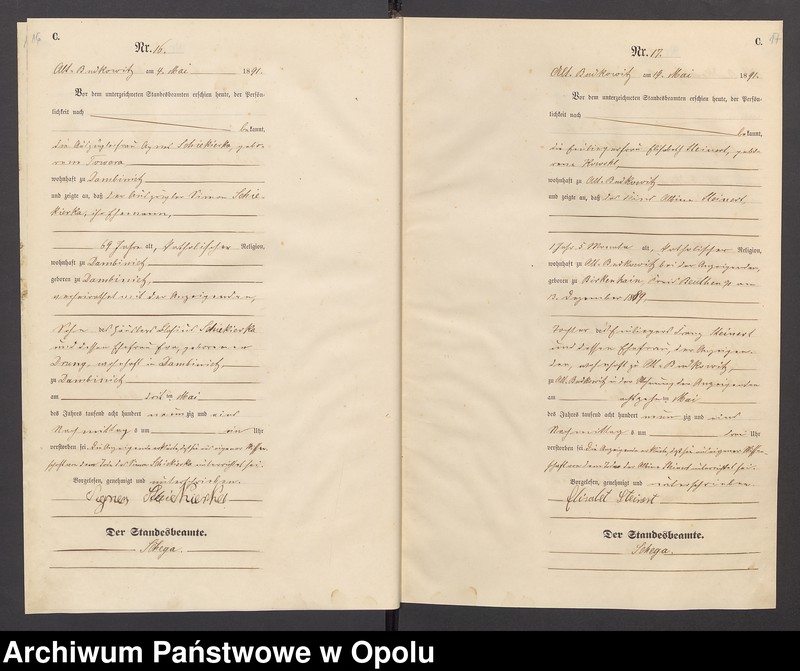 C.
Nr. 16.
Alt-Budkowitz am 9. Mai 1891.
Vor dem unterzeichneten Standesbeamten erschien heute, der Persön-
lichkeit nach
bekannt,
die Auszüglerfrau Agnes Schiekierka, gebo-
rene
wohnhaft zu Dambinietz
und zeigte an, daß der Auszügler Simon Schie-
kierka, ihr Ehemann,
69 Jahre alt, katholischer Religion,
wohnhaft zu Dambinietz
geboren zu Dambinietz,
verheirathet mit der Anzeigenden,
Sohn des Häuslers Schiekierka
und dessen Ehefrau Eva, geborenen
Drung, wohnhaft in Dambinietz,
zu Dambinietz
am Mai
des Jahres tausend acht hundert neun zig und eins
Nach mittag s um ein Uhr
verstorben sei. Die Anzeigende erklärte, daß sie aus eigener Wissen-
schaft von dem Tode des Simon Schiekierka unterrichtet sei.
Vorgelesen, genehmigt und unterschrieben.
Agnes Schiekierka
Der Standesbeamte.
Schega.
C.
17
Nr. 17.
Alt-Budkowitz am 19. Mai 1891.
Vor dem unterzeichneten Standesbeamten erschien heute, der Persön-
lichkeit nach
bekannt,
die Einliegersfrau Elisabeth Steinert, gebo-
rene Kowohl,
wohnhaft zu Alt-Budkowitz
und zeigte an, daß das Kind Steinert,
1 Jahr 5 Monate alt, katholischer Religion,
wohnhaft zu Alt-Budkowitz bei der Anzeigenden,
geboren zu Birkenhain Kreis Beuthen am
13. Dezember 1889,
Tochter des Einliegers Franz Steinert
und dessen Ehefrau, der Anzeigen-
den, wohnhaft zu Alt-Budkowitz,
zu Alt-Budkowitz in der Wohnung der Anzeigenden
am achtzehnten Mai
des Jahres tausend acht hundert neun zig und eins
Nach mittag s um drei Uhr
verstorben sei. Die Anzeigende erklärte, daß sie aus eigener Wissen-
schaft von dem Tode der Steinert unterrichtet sei.
Vorgelesen, genehmigt und unterschrieben
Steinert
Der Standesbeamte.
Schega.
Archiwum Państwowe w Opolu